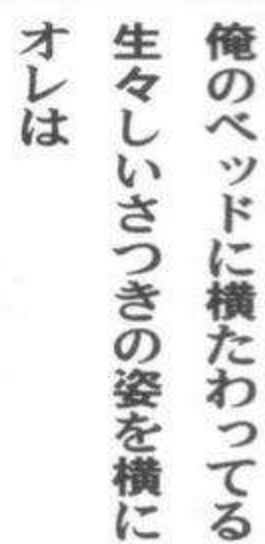 俺のベッドに横たわってる
生々しいさつきの姿を横に
オレは